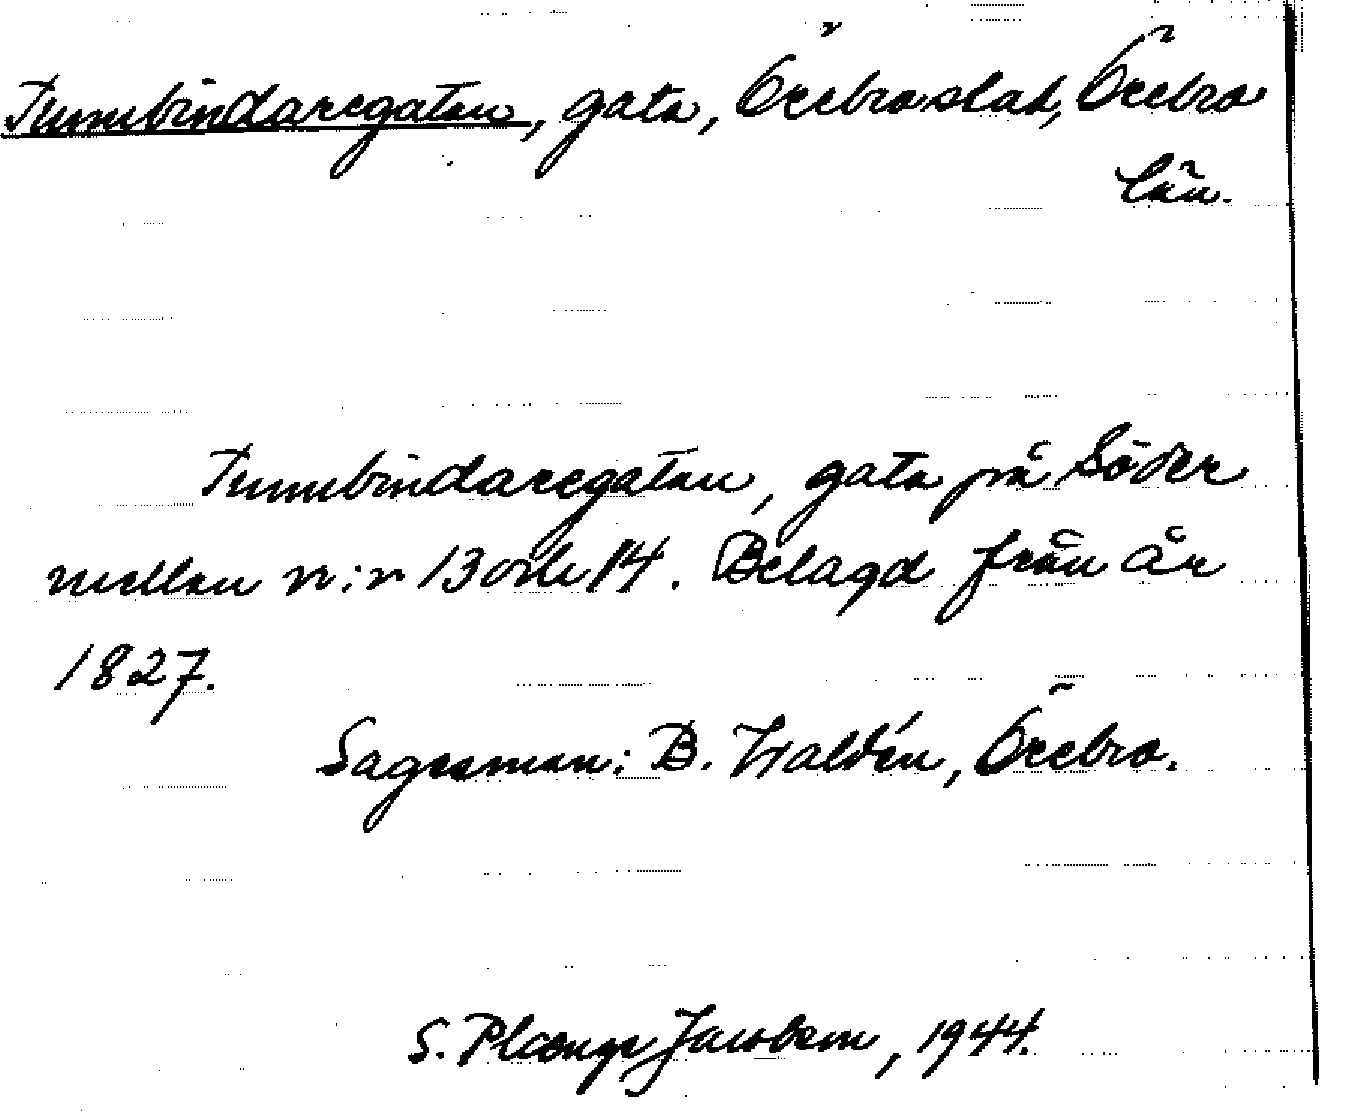 Tunnbindaregatan, gata, Örebro stad, Örebro
län.
Tunnbindaregatan, gata på Söder
mellan n:r 13 och 14. Belagd från år
1827.
Sagesman: B. Waldén, Örebro.
S. Plænge Jacobson, 1944.